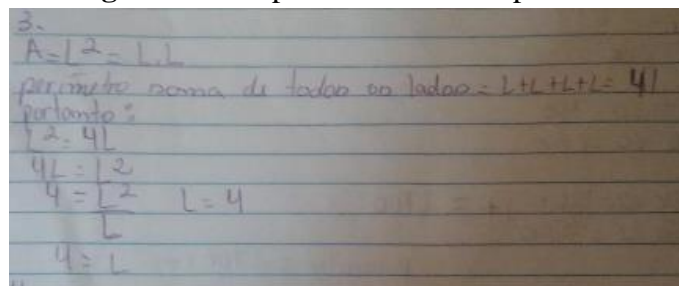 3.
A = L² = L.L
perímetro soma de todos os lados = L+L+L+L = 4L
portanto:
L² = 4L
4L = L²
4 = L²/L    L = 4
4 = L